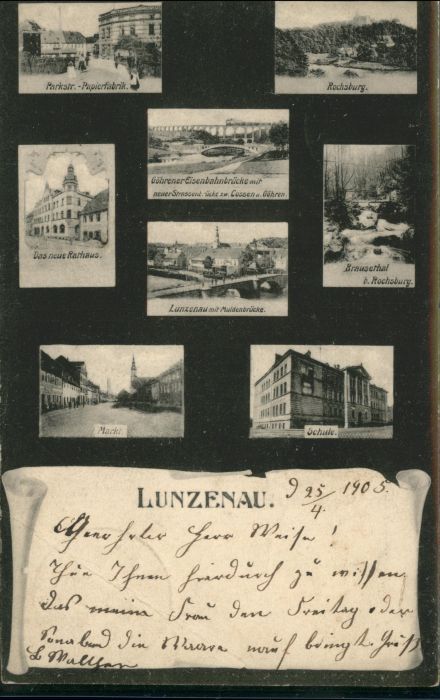 Parkstr.-Papierfabrik.
Rochsburg.
Göhrener Eisenbahnbrücke mit
neuer Strassenbrücke zw. Cossen u. Göhren
Das neue Rathaus.
Brausethal
b. Rochsburg.
Lunzenau mit Muldenbrücke.
Markt.
Schule.
LUNZENAU.
d 25/4. 1905.
Geehrter Herr Weise!
Thue Ihnen hierdurch zu wissen
das meine Frau den Freitag oder
Sonabend die Waare nauf bringt. Gruß